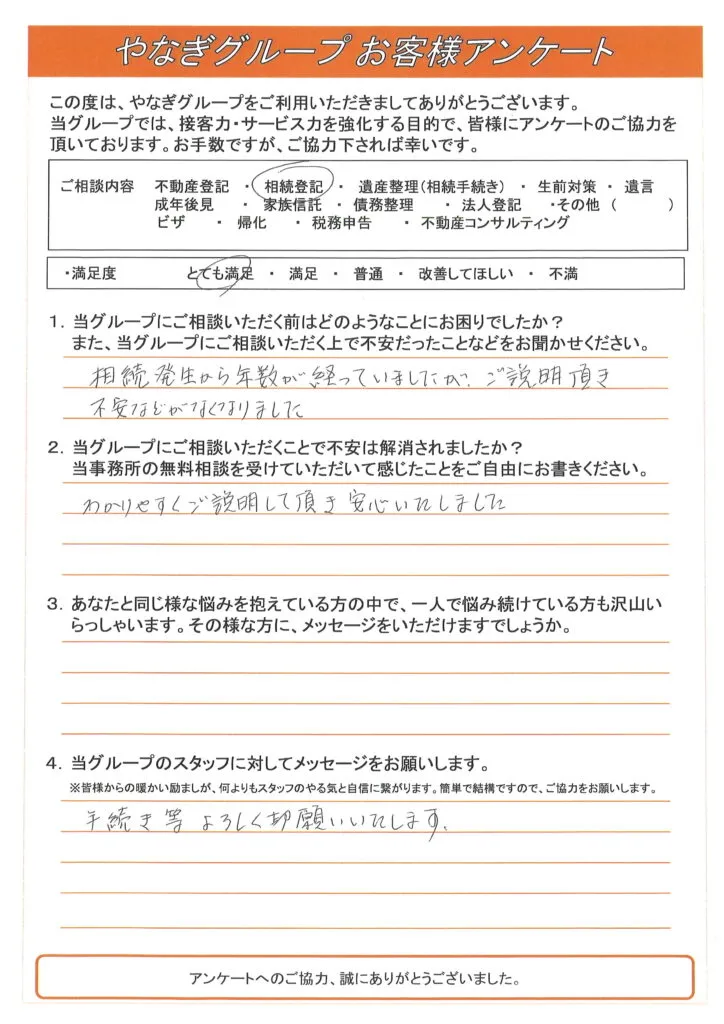 やなぎグループ お客様アンケート
この度は、やなぎグループをご利用いただきましてありがとうございます。
当グループでは、接客力・サービス力を強化する目的で、皆様にアンケートのご協力を
頂いております。お手数ですが、ご協力下されば幸いです。
ご相談内容 不動産登記 ・ 相続登記 ・ 遺産整理(相続手続き) ・ 生前対策 ・ 遺言
成年後見 ・ 家族信託 ・ 債務整理 ・ 法人登記 ・その他 ( )
ビザ ・ 帰化 ・ 税務申告 ・ 不動産コンサルティング
・満足度 とても満足 ・ 満足 ・ 普通 ・ 改善してほしい ・ 不満
1. 当グループにご相談いただく前はどのようなことにお困りでしたか?
また、当グループにご相談いただく上で不安だったことなどをお聞かせください。
相続発生から年数が経っていましたが、ご説明頂き
不安などがなくなりました
2. 当グループにご相談いただくことで不安は解消されましたか?
当事務所の無料相談を受けていただいて感じたことをご自由にお書きください。
わかりやすくご説明して頂き安心いたしました
3. あなたと同じ様な悩みを抱えている方の中で、一人で悩み続けている方も沢山い
らっしゃいます。その様な方に、メッセージをいただけますでしょうか。
4. 当グループのスタッフに対してメッセージをお願いします。
※皆様からの暖かい励ましが、何よりもスタッフのやる気と自信に繋がります。簡単で結構ですので、ご協力をお願いします。
手続き等よろしく御願いいたします.
アンケートへのご協力、誠にありがとうございました。